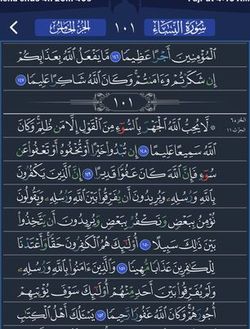 سُورَةُ النِّسَاءِ ١٠١ الجزء الخامس
الْمُؤْمِنِينَ أَجْرًا عَظِيمًا ١٤٦ مَّا يَفْعَلُ اللَّهُ بِعَذَابِكُمْ
إِن شَكَرْتُمْ وَءَامَنتُمْ وَكَانَ اللَّهُ شَاكِرًا عَلِيمًا ١٤٧
١٠١
لَّا يُحِبُّ اللَّهُ الْجَهْرَ بِالسُّوءِ مِنَ الْقَوْلِ إِلَّا مَن ظُلِمَ وَكَانَ
اللَّهُ سَمِيعًا عَلِيمًا ١٤٨ إِن تُبْدُوا خَيْرًا أَوْ تُخْفُوهُ أَوْ تَعْفُوا عَن
سُوءٍ فَإِنَّ اللَّهَ كَانَ عَفُوًّا قَدِيرًا ١٤٩ إِنَّ الَّذِينَ يَكْفُرُونَ
بِاللَّهِ وَرُسُلِهِ وَيُرِيدُونَ أَن يُفَرِّقُوا بَيْنَ اللَّهِ وَرُسُلِهِ وَيَقُولُونَ
نُؤْمِنُ بِبَعْضٍ وَنَكْفُرُ بِبَعْضٍ وَيُرِيدُونَ أَن يَتَّخِذُوا
بَيْنَ ذَٰلِكَ سَبِيلًا ١٥٠ أُولَٰئِكَ هُمُ الْكَافِرُونَ حَقًّا وَأَعْتَدْنَا
لِلْكَافِرِينَ عَذَابًا مُّهِينًا ١٥١ وَالَّذِينَ ءَامَنُوا بِاللَّهِ وَرُسُلِهِ
وَلَمْ يُفَرِّقُوا بَيْنَ أَحَدٍ مِّنْهُمْ أُولَٰئِكَ سَوْفَ يُؤْتِيهِمْ
أُجُورَهُمْ وَكَانَ اللَّهُ غَفُورًا رَّحِيمًا ١٥٢ يَسْـَٔلُكَ أَهْلُ الْكِتَٰبِ